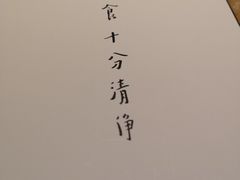 食十分清净